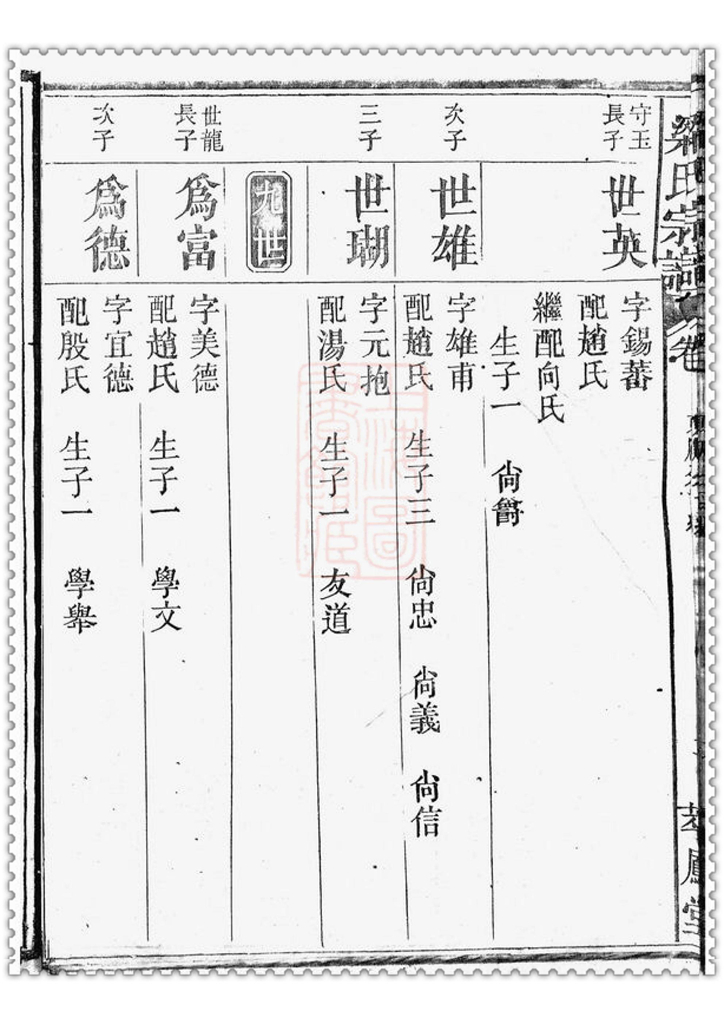 梁氏宗譜
卷
守玉
長子
世英
字錫蕃
配趙氏
繼配向氏
生子一 尙爵
次子
世雄
字雄甫
配趙氏 生子三 尙忠 尙義 尙信
三子
世瑚
字元抱
配湯氏 生子一 友道
九世
世龍
長子
爲富
字美德
配趙氏 生子一 學文
次子
爲德
字宜德
配殷氏 生子一 學舉